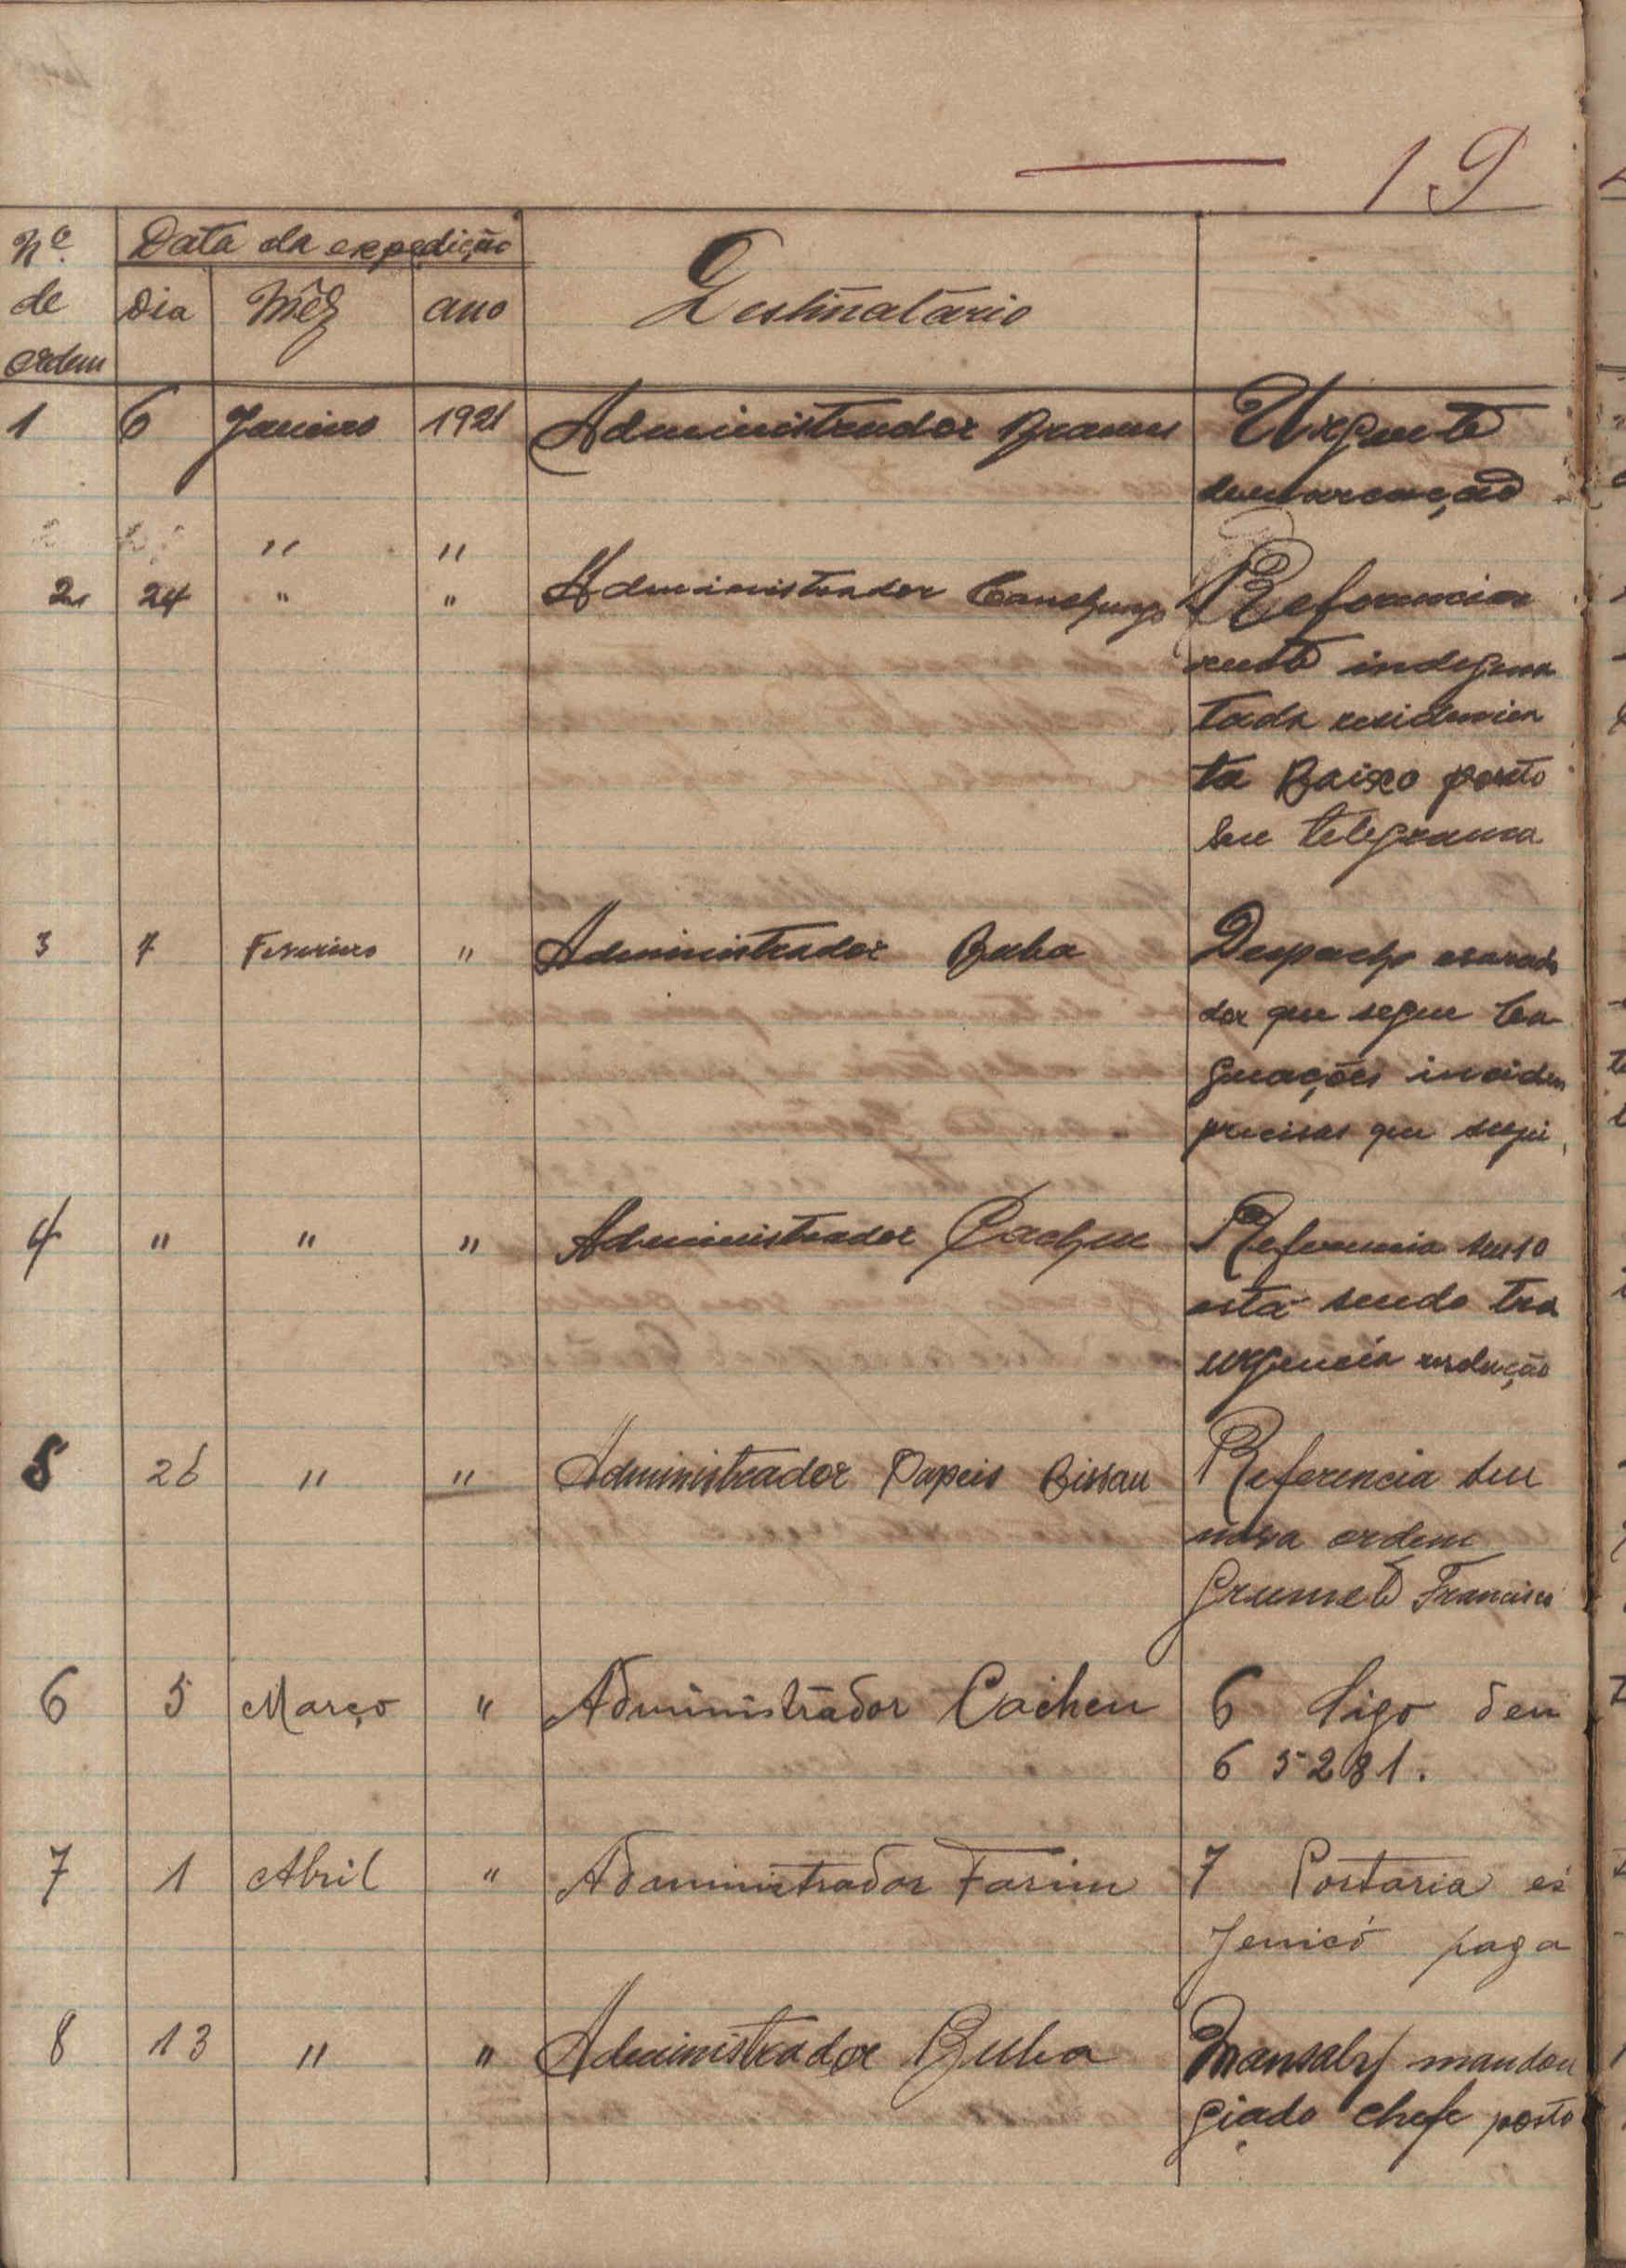 19
Nº Data da expedição
de Dia Mêz ano Destinatário
ordem
1 6 Janeiro 1921 Administrador Brames Urgente
demarcação
" "
2 24 " " Administrador Canchungo Referencia
indigena
tada residencia
ta Baixo porto
Seu telegrama
3 7 Fevereiro " Administrador Buba Despacho exarado
dor que segue
guações inciden
precisas que segui
4 " " " Administrador Cacheu Referencia
está sendo tra
urgencia resolução
5 26 " " Administrador Papeis Bissau Referencia seu
nova ordem
Grumete Francisco
6 5 Março " Administrador Cacheu 6 Sigo den
6 5281.
7 1 Abril " Administrador Farim 7 Portaria es
paga
8 13 " " Administrador Buba mandou
giado chefe posto